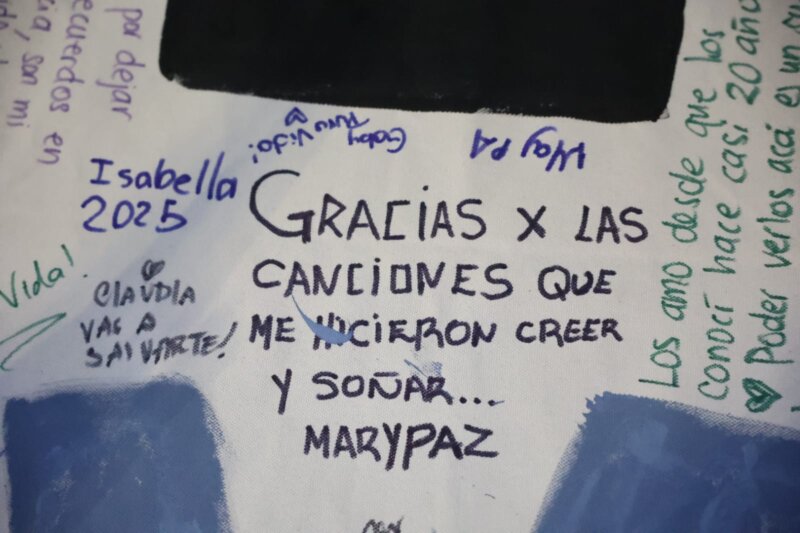 por dejar
recuerdos en
son mi
Isabella
2025
Vida!
CLAUDIA
VAS A
SALVARTE!
Gaby
Vida!
GRACIAS X LAS
CANCIONES QUE
ME HICIERON CREER
Y SOÑAR...
MARYPAZ
Los amo desde que los
conocí hace casi 20 año
Poder verlos acá es un